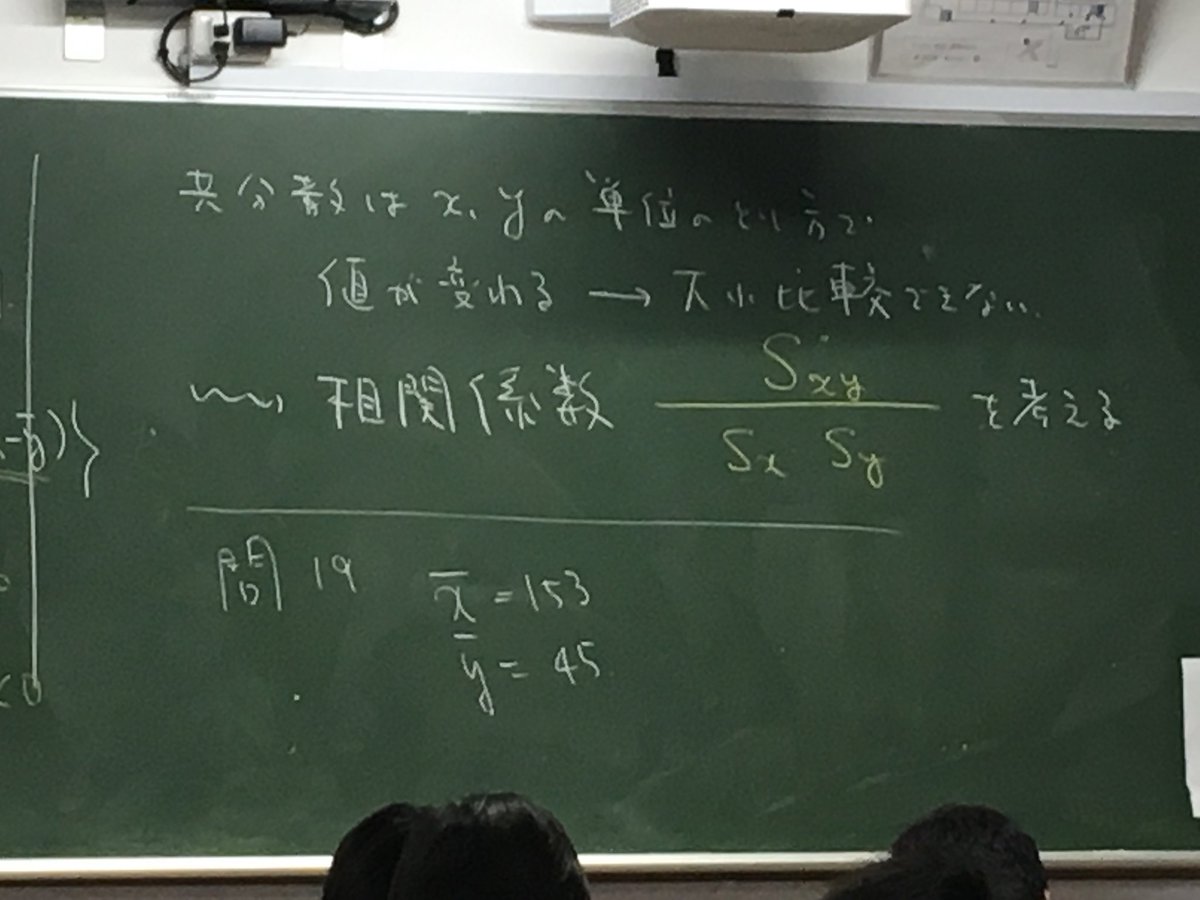 共分散は x, y の単位のとり方で
値が変わる → 大小比較できない
相関係数 Sxy / Sx Sy を考える
問 19 x̄ = 153
ȳ = 45
-ȳ)}
<0